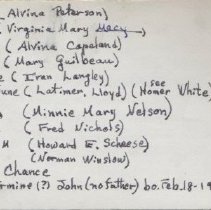 ( Alvina Peterson)
Virginia Mary Macy
( Alvina Capeland)
( Mary Guilbeau)
( Eran Langley)
une (Latimer, Lloyd) (see Homer White)
(Minnie Mary Nelson)
( Fred Nichols)
M ( Howard E. Scheese)
(Norman Winslow)
Chance
rmine (?) John (no father) bo. Feb. 18-19